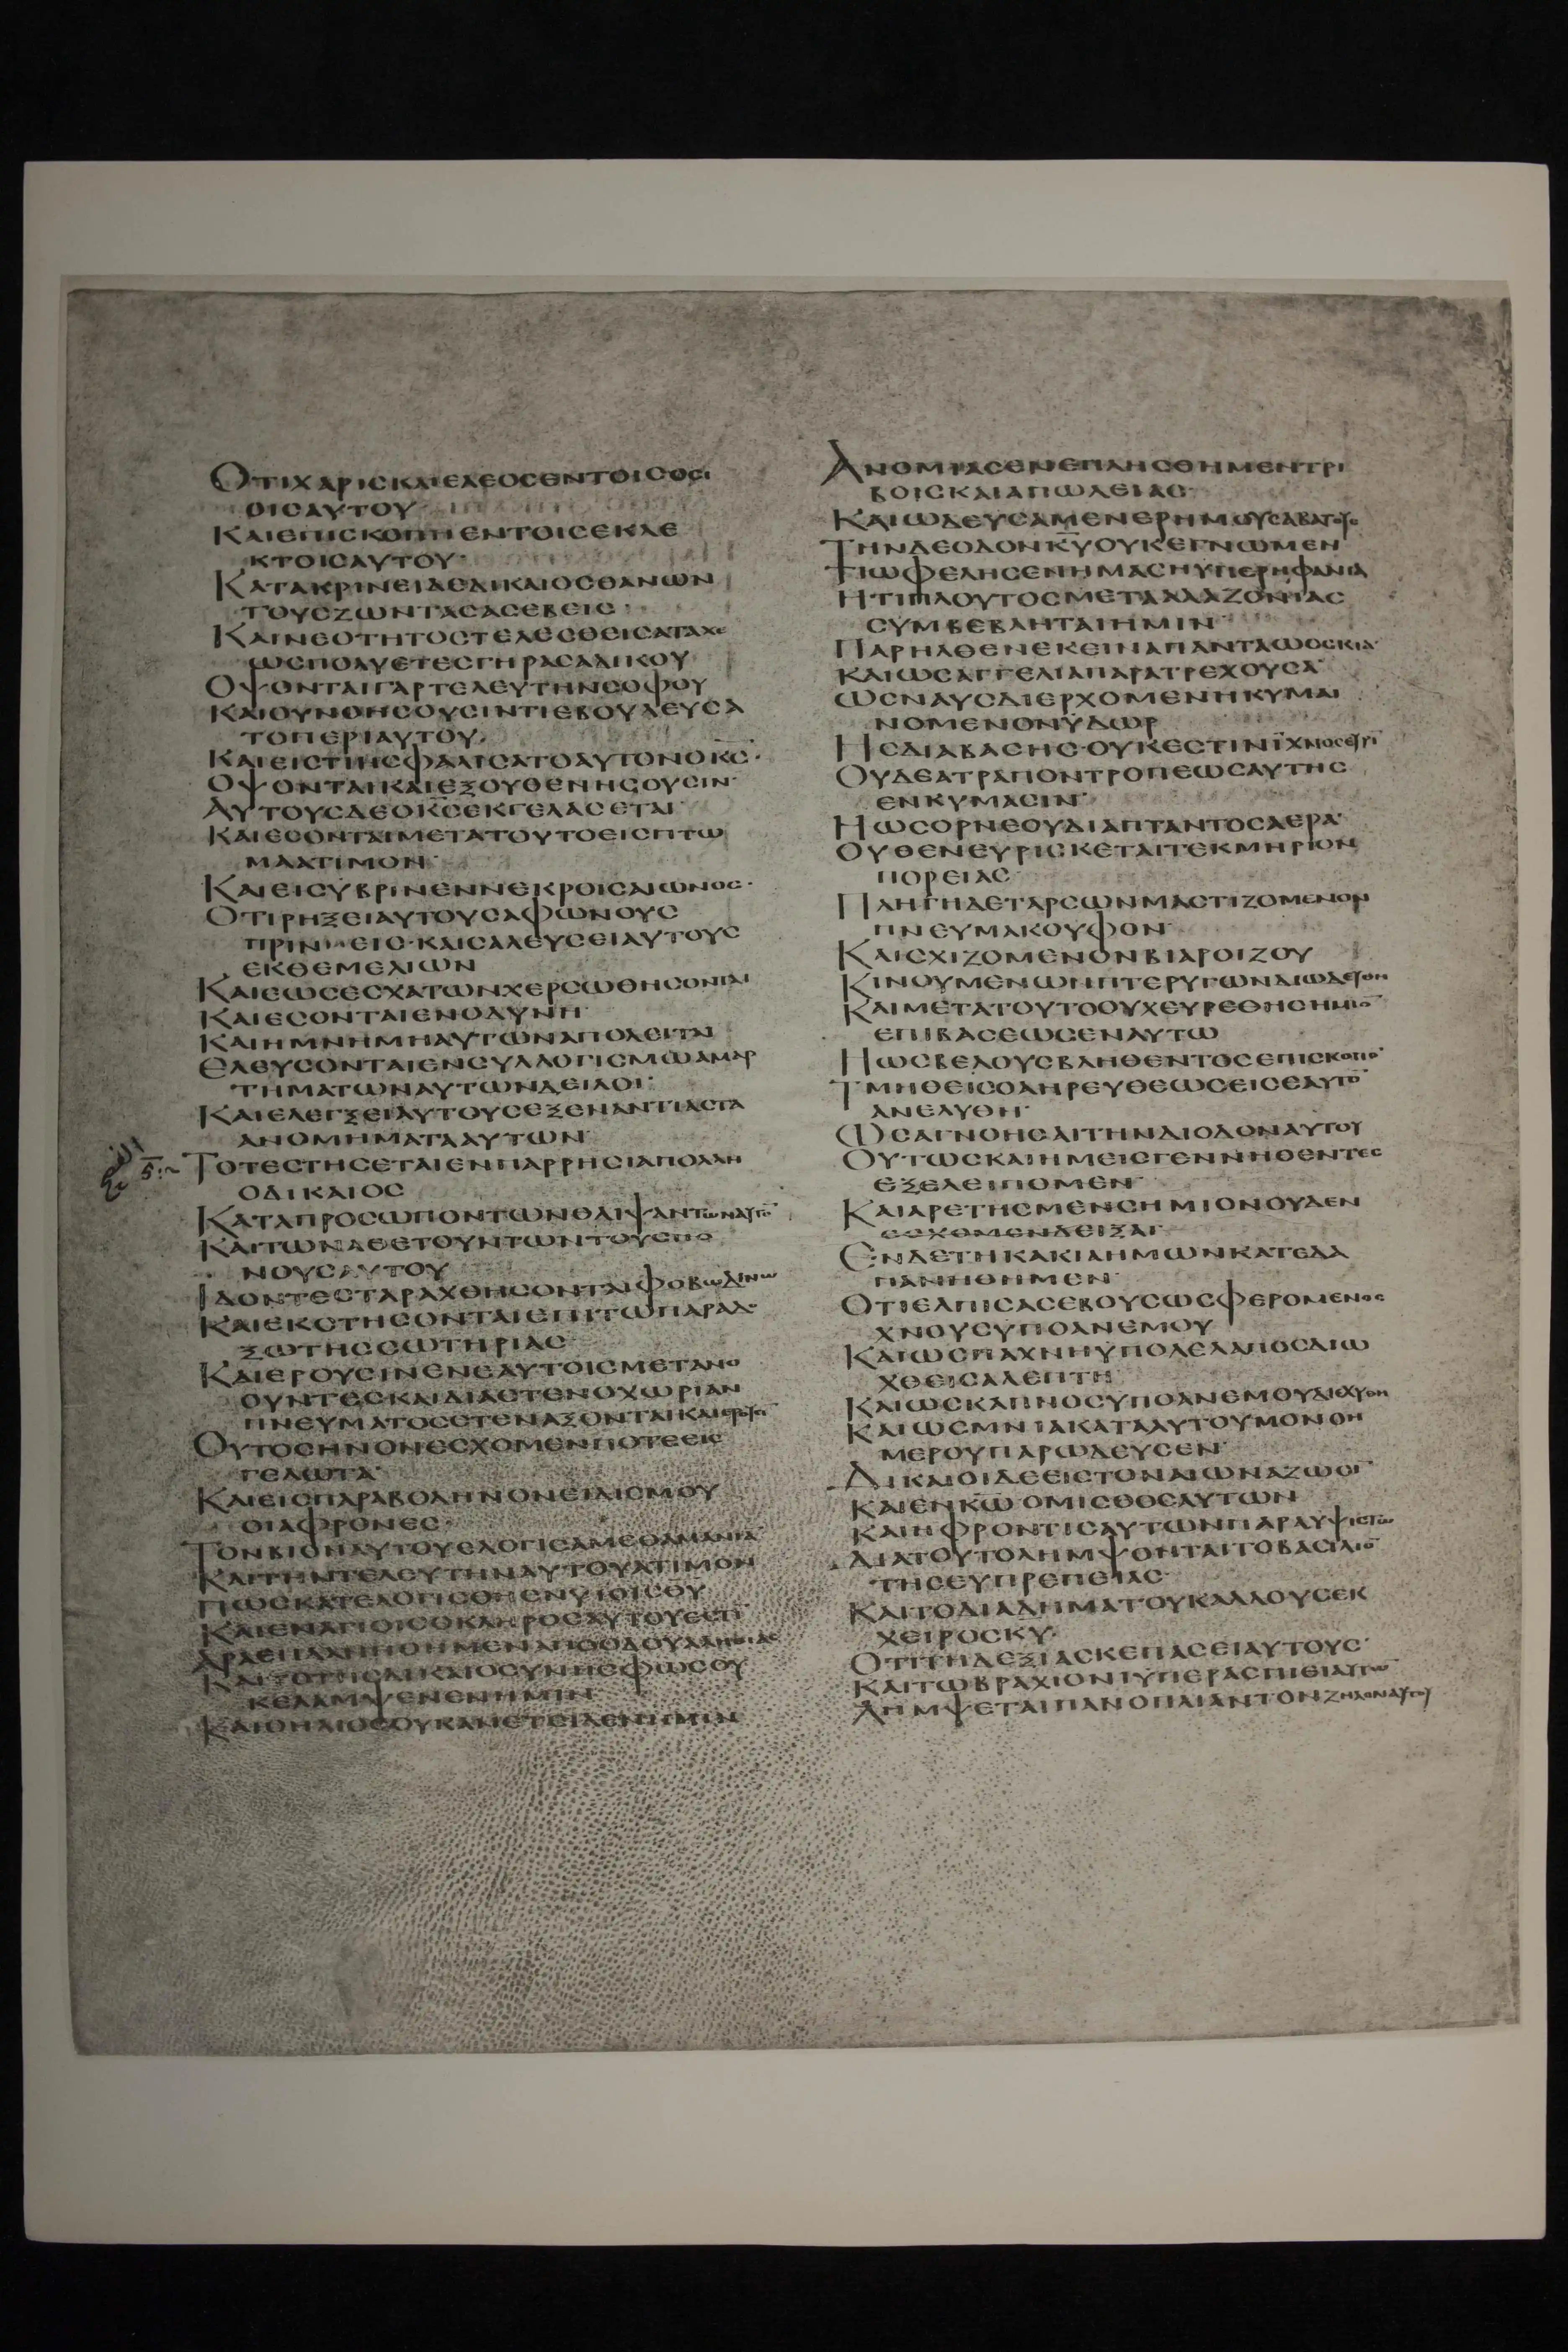 ΟΤΙΧΑΡΙϹΚΑΙΕΛΕΟϹΕΝΤΟΙϹΟϹΙ
ΟΙϹΑΥΤΟΥ
ΚΑΙΕΠΙϹΚΟΠΗΕΝΤΟΙϹΕΚΛΕ
ΚΤΟΙϹΑΥΤΟΥ·
ΚΑΤΑΚΡΙΝΕΙΔΕΔΙΚΑΙΟϹΘΑΝΩΝ
ΤΟΥϹΖΩΝΤΑϹΑϹΕΒΕΙϹ·
ΚΑΙΝΕΟΤΗΤΟϹΤΕΛΕϹΘΕΙϹΑΤΑΧΕ
ΩϹΠΟΛΥΕΤΕϹΓΗΡΑϹΑΔΙΚΟΥ
ΟΨΟΝΤΑΙΓΑΡΤΕΛΕΥΤΗΝϹΟΦΟΥ
ΚΑΙΟΥΝΟΗϹΟΥϹΙΝΤΙΕΒΟΥΛΕΥϹΑ
ΤΟΠΕΡΙΑΥΤΟΥ·
ΚΑΙΕΙϹΤΙΗϹΦΑΛΙϹΑΤΟΑΥΤΟΝΟΚ̅Ϲ̅·
ΟΨΟΝΤΑΙΚΑΙΕΞΟΥΘΕΝΗϹΟΥϹΙΝ·
ΑΥΤΟΥϹΔΕΟΚ̅Ϲ̅ΕΚΓΕΛΑϹΕΤΑΙ·
ΚΑΙΕϹΟΝΤΑΙΜΕΤΑΤΟΥΤΟΕΙϹΠΤΩ
ΜΑΑΤΙΜΟΝ·
ΚΑΙΕΙϹΥΒΡΙΝΕΝΝΕΚΡΟΙϹΑΙΩΝΟϹ·
ΟΤΙΡΗΞΕΙΑΥΤΟΥϹΑΦΩΝΟΥϹ
ΠΡΙΝΕΙϹ·ΚΑΙϹΑΛΕΥϹΕΙΑΥΤΟΥϹ
ΕΚΘΕΜΕΛΙΩΝ
ΚΑΙΕΩϹΕϹΧΑΤΩΝΧΕΡϹΩΘΗϹΟΝΤΑΙ
ΚΑΙΕϹΟΝΤΑΙΕΝΟΔΥΝΗ·
ΚΑΙΗΜΝΗΜΗΑΥΤΩΝΑΠΟΛΕΙΤΑΙ
ΕΛΕΥϹΟΝΤΑΙΕΝϹΥΛΛΟΓΙϹΜΩΑΜΑΡ
ΤΗΜΑΤΩΝΑΥΤΩΝΔΕΙΛΟΙ·
ΚΑΙΕΛΕΓΞΕΙΑΥΤΟΥϹΕΞΕΝΑΝΤΙΑϹΤΑ
ΑΝΟΜΗΜΑΤΑΑΥΤΩΝ·
ΤΟΤΕϹΤΗϹΕΤΑΙΕΝΠΑΡΡΗϹΙΑΠΟΛΛΗ
ΟΔΙΚΑΙΟϹ
ΚΑΤΑΠΡΟϹΩΠΟΝΤΩΝΘΛΙΨΑΝΤΩΝΑΥΤΟ̅
ΚΑΙΤΩΝΑΘΕΤΟΥΝΤΩΝΤΟΥϹΠΟ
ΝΟΥϹΑΥΤΟΥ
ΙΔΟΝΤΕϹΤΑΡΑΧΘΗϹΟΝΤΑΙΦΟΒΩΔΙΝΩ
ΚΑΙΕΚϹΤΗϹΟΝΤΑΙΕΠΙΤΩΠΑΡΑΔΟ
ΞΩΤΗϹϹΩΤΗΡΙΑϹ·
ΚΑΙΕΡΟΥϹΙΝΕΝΕΑΥΤΟΙϹΜΕΤΑΝΟ
ΟΥΝΤΕϹΚΑΙΔΙΑϹΤΕΝΟΧΩΡΙΑΝ
ΠΝΕΥΜΑΤΟϹϹΤΕΝΑΞΟΝΤΑΙΚΑΙΕΡΟΥϹΙ̅
ΟΥΤΟϹΗΝΟΝΕϹΧΟΜΕΝΠΟΤΕΕΙϹ
ΓΕΛΩΤΑ·
ΚΑΙΕΙϹΠΑΡΑΒΟΛΗΝΟΝΕΙΔΙϹΜΟΥ
ΟΙΑΦΡΟΝΕϹ·
ΤΟΝΒΙΟΝΑΥΤΟΥΕΛΟΓΙϹΑΜΕΘΑΜΑΝΙΑ̅
ΚΑΙΤΗΝΤΕΛΕΥΤΗΝΑΥΤΟΥΑΤΙΜΟΝ
ΠΩϹΚΑΤΕΛΟΓΙϹΘΗΕΝΥΙΟΙϹΘΥ
ΚΑΙΕΝΑΓΙΟΙϹΟΚΛΗΡΟϹΑΥΤΟΥΕϹΤΙ̅
ΑΡΑΕΠΛΑΝΗΘΗΜΕΝΑΠΟΟΔΟΥΑΛΗΘΕΙΑϹ
ΚΑΙΤΟΤΗϹΔΙΚΑΙΟϹΥΝΗϹΦΩϹΟΥ
ΚΕΛΑΜΨΕΝΕΝΗΜΙΝ
ΚΑΙΟΗΛΙΟϹΟΥΚΑΝΕΤΕΙΛΕΝΗΜΙΝ
ΑΝΟΜΙΑϹΕΝΕΠΛΗϹΘΗΜΕΝΤΡΙ
ΒΟΙϹΚΑΙΑΠΩΛΕΙΑϹ·
ΚΑΙΩΔΕΥϹΑΜΕΝΕΡΗΜΟΥϹΑΒΑΤΟΥϹ
ΤΗΝΔΕΟΔΟΝΚ̅Υ̅ΟΥΚΕΓΝΩΜΕΝ
ΤΙΩΦΕΛΗϹΕΝΗΜΑϹΗΥΠΕΡΗΦΑΝΙΑ
ΗΤΙΠΛΟΥΤΟϹΜΕΤΑΑΛΑΖΟΝΙΑϹ
ϹΥΜΒΕΒΛΗΤΑΙΗΜΙΝ·
ΠΑΡΗΛΘΕΝΕΚΕΙΝΑΠΑΝΤΑΩϹϹΚΙΑ·
ΚΑΙΩϹΑΓΓΕΛΙΑΠΑΡΑΤΡΕΧΟΥϹΑ·
ΩϹΝΑΥϹΔΙΕΡΧΟΜΕΝΗΚΥΜΑΙ
ΝΟΜΕΝΟΝΫΔΩΡ
ΗϹΔΙΑΒΑϹΗϹ·ΟΥΚΕϹΤΙΝΪΧΝΟϹΕΥΡΙ̅
ΟΥΔΕΑΤΡΑΠΟΝΤΡΟΠΕΩϹΑΥΤΗϹ
ΕΝΚΥΜΑϹΙΝ·
ΗΩϹΟΡΝΕΟΥΔΙΑΠΤΑΝΤΟϹΑΕΡΑ·
ΟΥΘΕΝΕΥΡΙϹΚΕΤΑΙΤΕΚΜΗΡΙΟΝ
ΠΟΡΕΙΑϹ·
ΠΛΗΓΗΔΕΤΑΡϹΩΝΜΑϹΤΙΖΟΜΕΝΟΝ
ΠΝΕΥΜΑΚΟΥΦΟΝ·
ΚΑΙϹΧΙΖΟΜΕΝΟΝΒΙΑΡΟΙΖΟΥ
ΚΙΝΟΥΜΕΝΩΝΠΤΕΡΥΓΩΝΔΙΩΔΕΥΘΗ
ΚΑΙΜΕΤΑΤΟΥΤΟΟΥΧΕΥΡΕΘΗϹΗΜΙΟ̅
ΕΠΙΒΑϹΕΩϹΕΝΑΥΤΩ
ΗΩϹΒΕΛΟΥϹΒΛΗΘΕΝΤΟϹΕΠΙϹΚΟΠΟ̅
ΤΜΗΘΕΙϹΟΑΗΡΕΥΘΕΩϹΕΙϹΕΑΥΤΟ̅
ΑΝΕΛΥΘΗ·
ΩϹΑΓΝΟΗϹΑΙΤΗΝΔΙΟΔΟΝΑΥΤΟΥ
ΟΥΤΩϹΚΑΙΗΜΕΙϹΓΕΝΝΗΘΕΝΤΕϹ
ΕΞΕΛΕΙΠΟΜΕΝ·
ΚΑΙΑΡΕΤΗϹΜΕΝϹΗΜΙΟΝΟΥΔΕΝ
ΕϹΧΟΜΕΝΔΕΙΞΑΙ·
ΕΝΔΕΤΗΚΑΚΙΑΗΜΩΝΚΑΤΕΔΑ
ΠΑΝΗΘΗΜΕΝ·
ΟΤΙΕΛΠΙϹΑϹΕΒΟΥϹΩϹΦΕΡΟΜΕΝΟϹ
ΧΝΟΥϹΥΠΟΑΝΕΜΟΥ
ΚΑΙΩϹΠΑΧΝΗΫΠΟΛΕΛΑΠΟϹΔΙΩ
ΧΘΕΙϹΑΛΕΠΤΗ
ΚΑΙΩϹΚΑΠΝΟϹΥΠΟΑΝΕΜΟΥΔΙΕΧΥΘΗ
ΚΑΙΩϹΜΝΙΑΚΑΤΑΛΥΤΟΥΜΟΝΟΗ
ΜΕΡΟΥΠΑΡΩΔΕΥϹΕΝ·
ΔΙΚΑΙΟΙΔΕΕΙϹΤΟΝΑΙΩΝΑΖΩϹΙ̅
ΚΑΙΕΝΚ̅Ω̅ΟΜΙϹΘΟϹΑΥΤΩΝ
ΚΑΙΗΦΡΟΝΤΙϹΑΥΤΩΝΠΑΡΑΥΨΙϹΤΩ
ΔΙΑΤΟΥΤΟΛΗΜΨΟΝΤΑΙΤΟΒΑϹΙΛΙΟ̅
ΤΗϹΕΥΠΡΕΠΕΙΑϹ·
ΚΑΙΤΟΔΙΑΔΗΜΑΤΟΥΚΑΛΛΟΥϹΕΚ
ΧΕΙΡΟϹΚΥ·
ΟΤΙΤΗΔΕΞΙΑϹΚΕΠΑϹΕΙΑΥΤΟΥϹ·
ΚΑΙΤΩΒΡΑΧΙΟΝΙΫΠΕΡΑϹΠΙΕΙΑΥΤΩ̅
ΛΗΜΨΕΤΑΙΠΑΝΟΠΛΙΑΝΤΟΝΖΗΛΟΝΑΥΤΟΥ